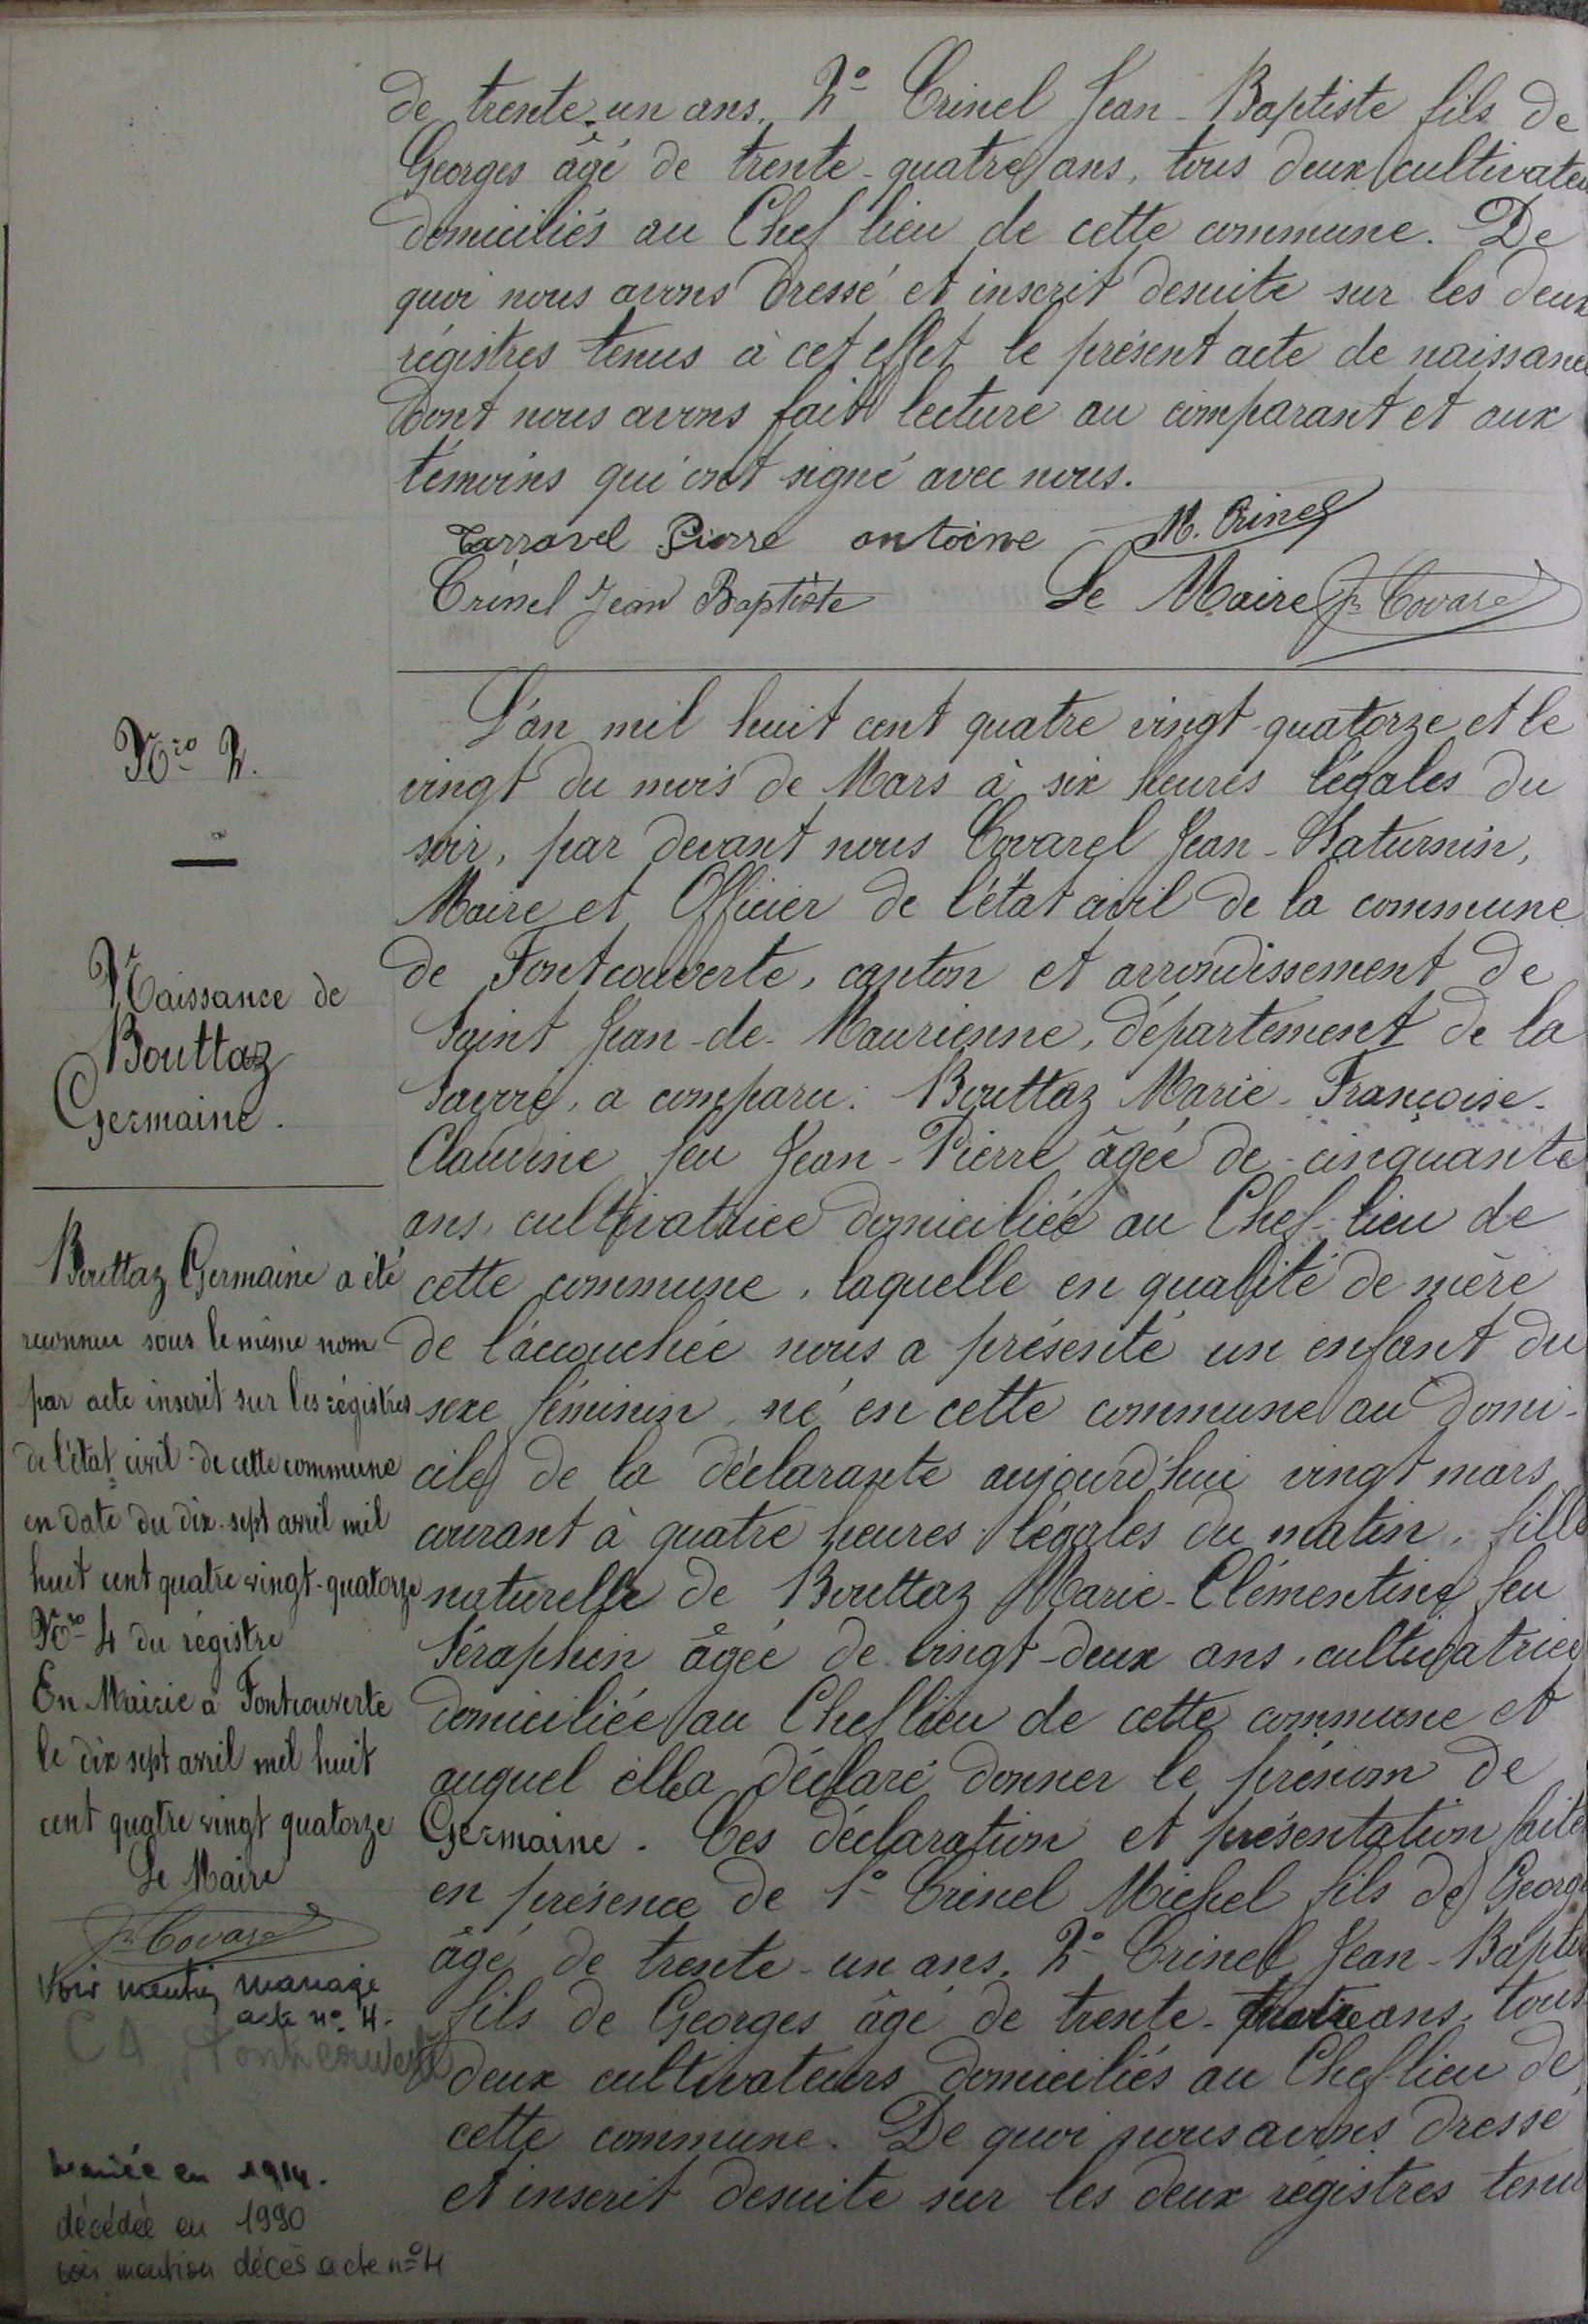 de trente-un ans. 2° Crinel Jean-Baptiste fils de
Georges âgé de trente-quatre ans, tous deux cultivateu
domiciliés au Chef lieu de cette commune. De
quoi nous avons dressé et inscrit desuite sur les deux
régistres tenus à cet effet le présent acte de naissance
dont nous avons fait lecture au comparant et aux
témoins qui ont signé avec nous.
Tarravel Pierre antoine M. Crinel
Crinel Jean Baptiste Le Maire Jn Covarel
N.ro 2.
Naissance de
Bouttaz
Germaine.
Bouttaz Germaine a été
reconnue sous le même nom
par acte inscrit sur les régistres
de l'état civil de cette commune
en date du dix-sept avril mil
huit cent quatre vingt-quatorze
N.ro 4 du régistre
En Mairie à Fontcouverte
le dix sept avril mil huit
cent quatre vingt quatorze
Le Maire
Jn Covarel
Voir mention mariage
acte n° 4.
C A Fontcouverte
Mariée en 1914.
décédée en 1980
voir mention décès acte n° 4
L'an mil huit cent quatre vingt-quatorze et le
vingt du mois de Mars à six heures légales du
soir, par devant nous Covarel Jean-Saturnin,
Maire et Officier de l'état civil de la commune
de Fontcouverte, canton et arrondissement de
Saint Jean-de-Maurienne, département de la
Savoie, a comparu: Bouttaz Marie-Françoise-
Claudine feu Jean-Pierre âgée de cinquante
ans, cultivatrice domiciliée au Chef-lieu de
cette commune, laquelle en qualité de mère
de l'accouchée nous a présenté un enfant du
sexe féminin, né en cette commune au domi-
cile de la déclarante aujourd'hui vingt mars
courant à quatre heures légales du matin, fille
naturelle de Bouttaz Marie-Clémentine feu
Séraphin âgée de vingt-deux ans, cultivatrice
domiciliée au Chef lieu de cette commune et
auquel elle a déclaré donner le prénom de
Germaine. Ces déclaration et présentation faites
en présence de 1° Crinel Michel fils de George
âgé de trente-un ans. 2° Crinel Jean-Baptis
fils de Georges âgé de trente-quatre ans, tous
deux cultivateurs domiciliés au Chef-lieu de
cette commune. De quoi nous avons dressé
et inscrit desuite sur les deux régistres tenu